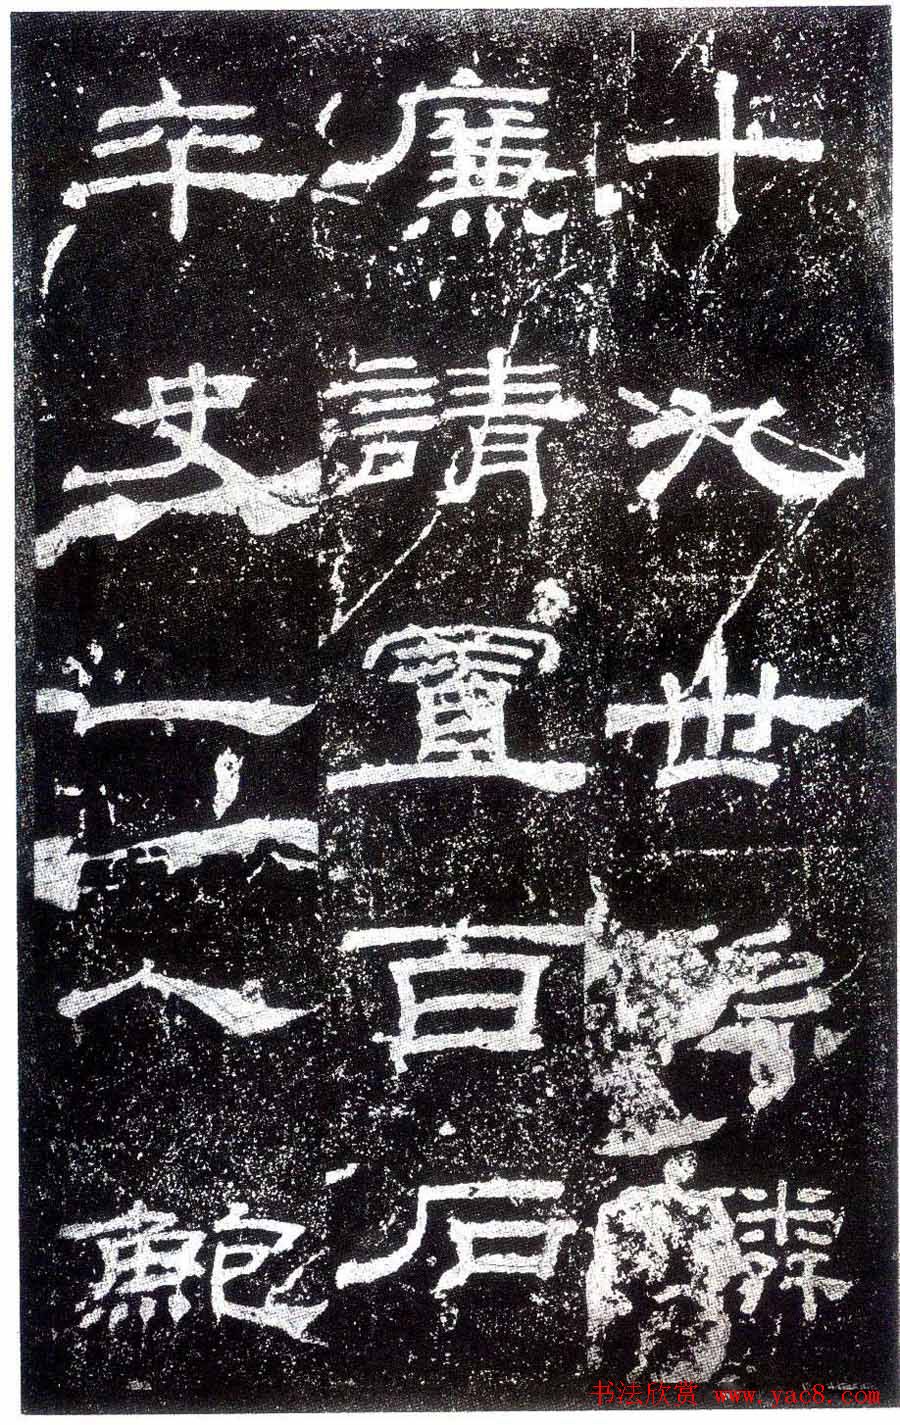 十九世孫麟
廉請置百石
卒史一人鮑
书法欣赏 www.yac8.com